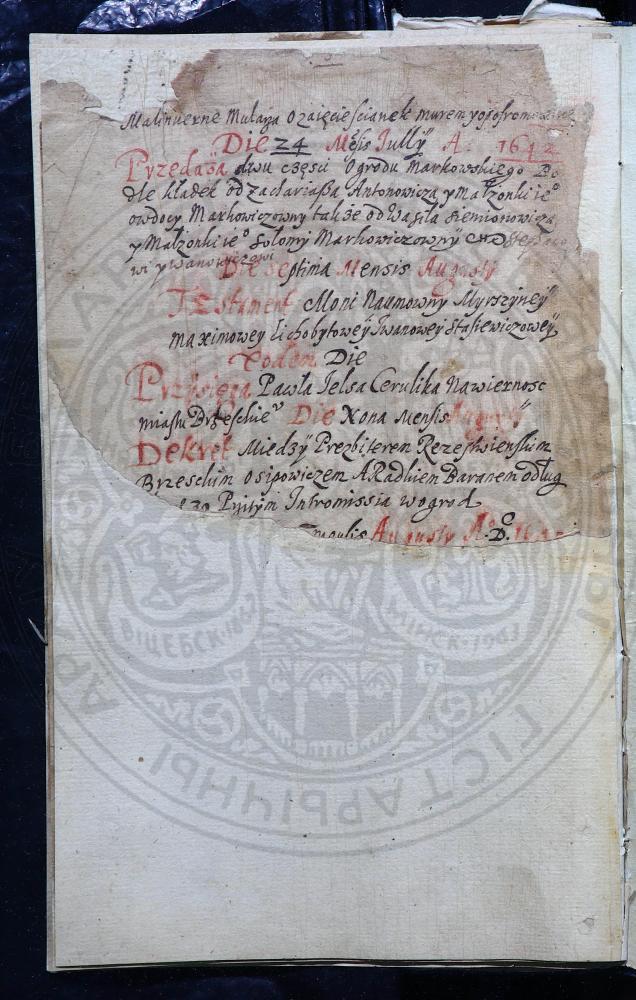 Malinverne Mularza o zaięcie ścianek murem
Die 24 Mēsis Jullÿ A: 1642
Przedaża dwu części Ogrodu Markowskiego Po
dle kładek od Zachariasza Antonowicza y Małżonki ieº
Owdoci Markowiczowny także od Wasila Siemionowicza
y Małżonki ieº Solomij Markowiczowny
Die septima Mensis Augustÿ
Testament Moni Naumowny Myrszyney
Maximowey Lichobytowey Iwanowey Stasiewiczowey
Eodem Die
Przysięga Pawła Jelsa Cerulika na wiernosc
miastu Brzeskieº Die Nona Mensis Augustÿ
Dekret Miedzÿ Prezbiterem Rzeszkwienskim
Brzeskim Osipowiczem A Radkiem Baranem o dług
Przitym Intromissia w ogrod
Augusty Aº D.
ВІЦЕБСК
МІНСК
ГІСТАРЫЧНЫ